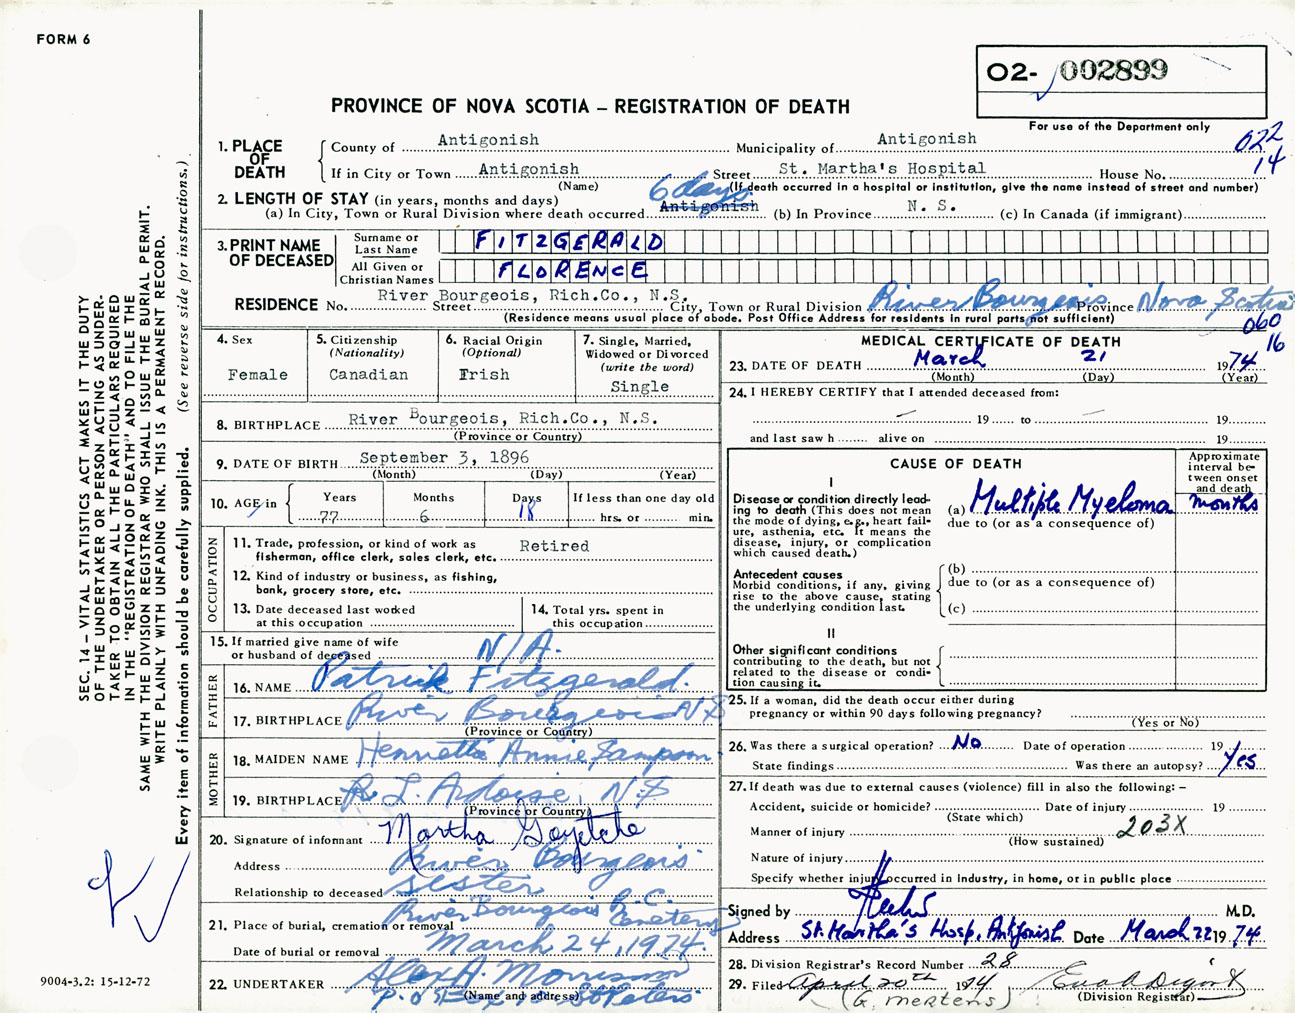 FORM 6
O2- 002899
PROVINCE OF NOVA SCOTIA – REGISTRATION OF DEATH
For use of the Department only
022
14
1. PLACE OF DEATH
County of Antigonish Municipality of Antigonish
If in City or Town Antigonish Street St. Martha's Hospital House No.
(Name) (If death occurred in a hospital or institution, give the name instead of street and number)
2. LENGTH OF STAY (in years, months and days) 6 days
(a) In City, Town or Rural Division where death occurred Antigonish (b) In Province N. S. (c) In Canada (if immigrant)
3. PRINT NAME OF DECEASED
Surname or Last Name FITZGERALD
All Given or Christian Names FLORENCE
RESIDENCE No. River Bourgeois, Rich.Co., N.S. Street City, Town or Rural Division River Bourgeois Province Nova Scotia
(Residence means usual place of abode. Post Office Address for residents in rural parts not sufficient)
060
16
4. Sex
Female
5. Citizenship
(Nationality)
Canadian
6. Racial Origin
(Optional)
Irish
7. Single, Married,
Widowed or Divorced
(write the word)
Single
8. BIRTHPLACE River Bourgeois, Rich.Co., N.S.
(Province or Country)
9. DATE OF BIRTH September 3, 1896
(Month) (Day) (Year)
10. AGE in Years 77 Months 6 Days 18 If less than one day old
hrs. or min.
OCCUPATION
11. Trade, profession, or kind of work as
fisherman, office clerk, sales clerk, etc. Retired
12. Kind of industry or business, as fishing,
bank, grocery store, etc.
13. Date deceased last worked
at this occupation
14. Total yrs. spent in
this occupation
15. If married give name of wife
or husband of deceased N/A.
FATHER
16. NAME Patrick Fitzgerald.
17. BIRTHPLACE River Bourgeois N S
(Province or Country)
MOTHER
18. MAIDEN NAME Henrietta Annie Sampson
19. BIRTHPLACE L. Ardoise, N.S
(Province or Country)
20. Signature of informant Martha Goyetche
Address River Bourgeois
Relationship to deceased sister
21. Place of burial, cremation or removal River Bourgeois R.C. Cemetery
Date of burial or removal March 24, 1974.
22. UNDERTAKER Alex A. Morrison
(Name and address) St Peters
MEDICAL CERTIFICATE OF DEATH
23. DATE OF DEATH March 21 1974
(Month) (Day) (Year)
24. I HEREBY CERTIFY that I attended deceased from:
– 19 to – 19
and last saw h alive on 19
CAUSE OF DEATH
Approximate
interval be-
tween onset
and death
I
Disease or condition directly lead-
ing to death (This does not mean
the mode of dying, e.g., heart fail-
ure, asthenia, etc. It means the
disease, injury, or complication
which caused death.)
(a) Multiple Myeloma months
due to (or as a consequence of)
Antecedent causes
Morbid conditions, if any, giving
rise to the above cause, stating
the underlying condition last.
(b)
due to (or as a consequence of)
(c)
II
Other significant conditions
contributing to the death, but not
related to the disease or condi-
tion causing it.
25. If a woman, did the death occur either during
pregnancy or within 90 days following pregnancy?
(Yes or No)
26. Was there a surgical operation? No Date of operation 19
State findings Was there an autopsy? Yes
27. If death was due to external causes (violence) fill in also the following: –
Accident, suicide or homicide? Date of injury 19
(State which)
Manner of injury 203X
(How sustained)
Nature of injury
Specify whether injury occurred in Industry, in home, or in public place
Signed by M.D.
Address St. Martha's Hosp, Antigonish Date March 22 1974
28. Division Registrar's Record Number 28
29. Filed April 20th 1974
(G. MERTENS) (Division Registrar)
SEC. 14 – VITAL STATISTICS ACT MAKES IT THE DUTY
OF THE UNDERTAKER OR PERSON ACTING AS UNDER-
TAKER TO OBTAIN ALL THE PARTICULARS REQUIRED
IN THE "REGISTRATION OF DEATH" AND TO FILE THE
SAME WITH THE DIVISION REGISTRAR WHO SHALL ISSUE THE BURIAL PERMIT.
WRITE PLAINLY WITH UNFADING INK. THIS IS A PERMANENT RECORD.
Every item of information should be carefully supplied. (See reverse side for instructions.)
9004-3.2: 15-12-72